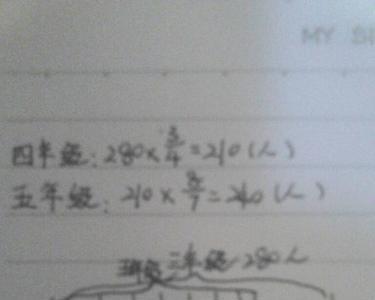 MY
四年级：280×3/4=210(人)
五年级：210×8/7=240(人)
三年级 280人